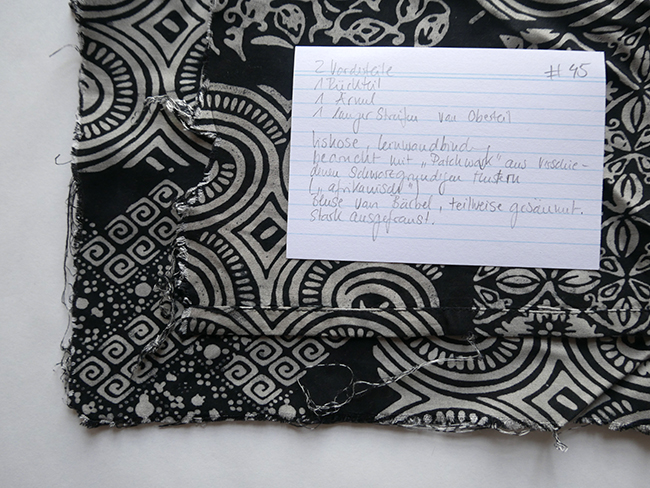 2 Vorderteile #45
1 Rückteil
1 Ärmel
1 langer Streifen von Oberteil
Viskose, leinwandbind.,
bedruckt mit „Patchwork" aus verschie-
denen schwarzgrundigen Mustern
(„afrikanisch")
Bluse von Bärbel, teilweise gesäumt.
stark ausgefranst.